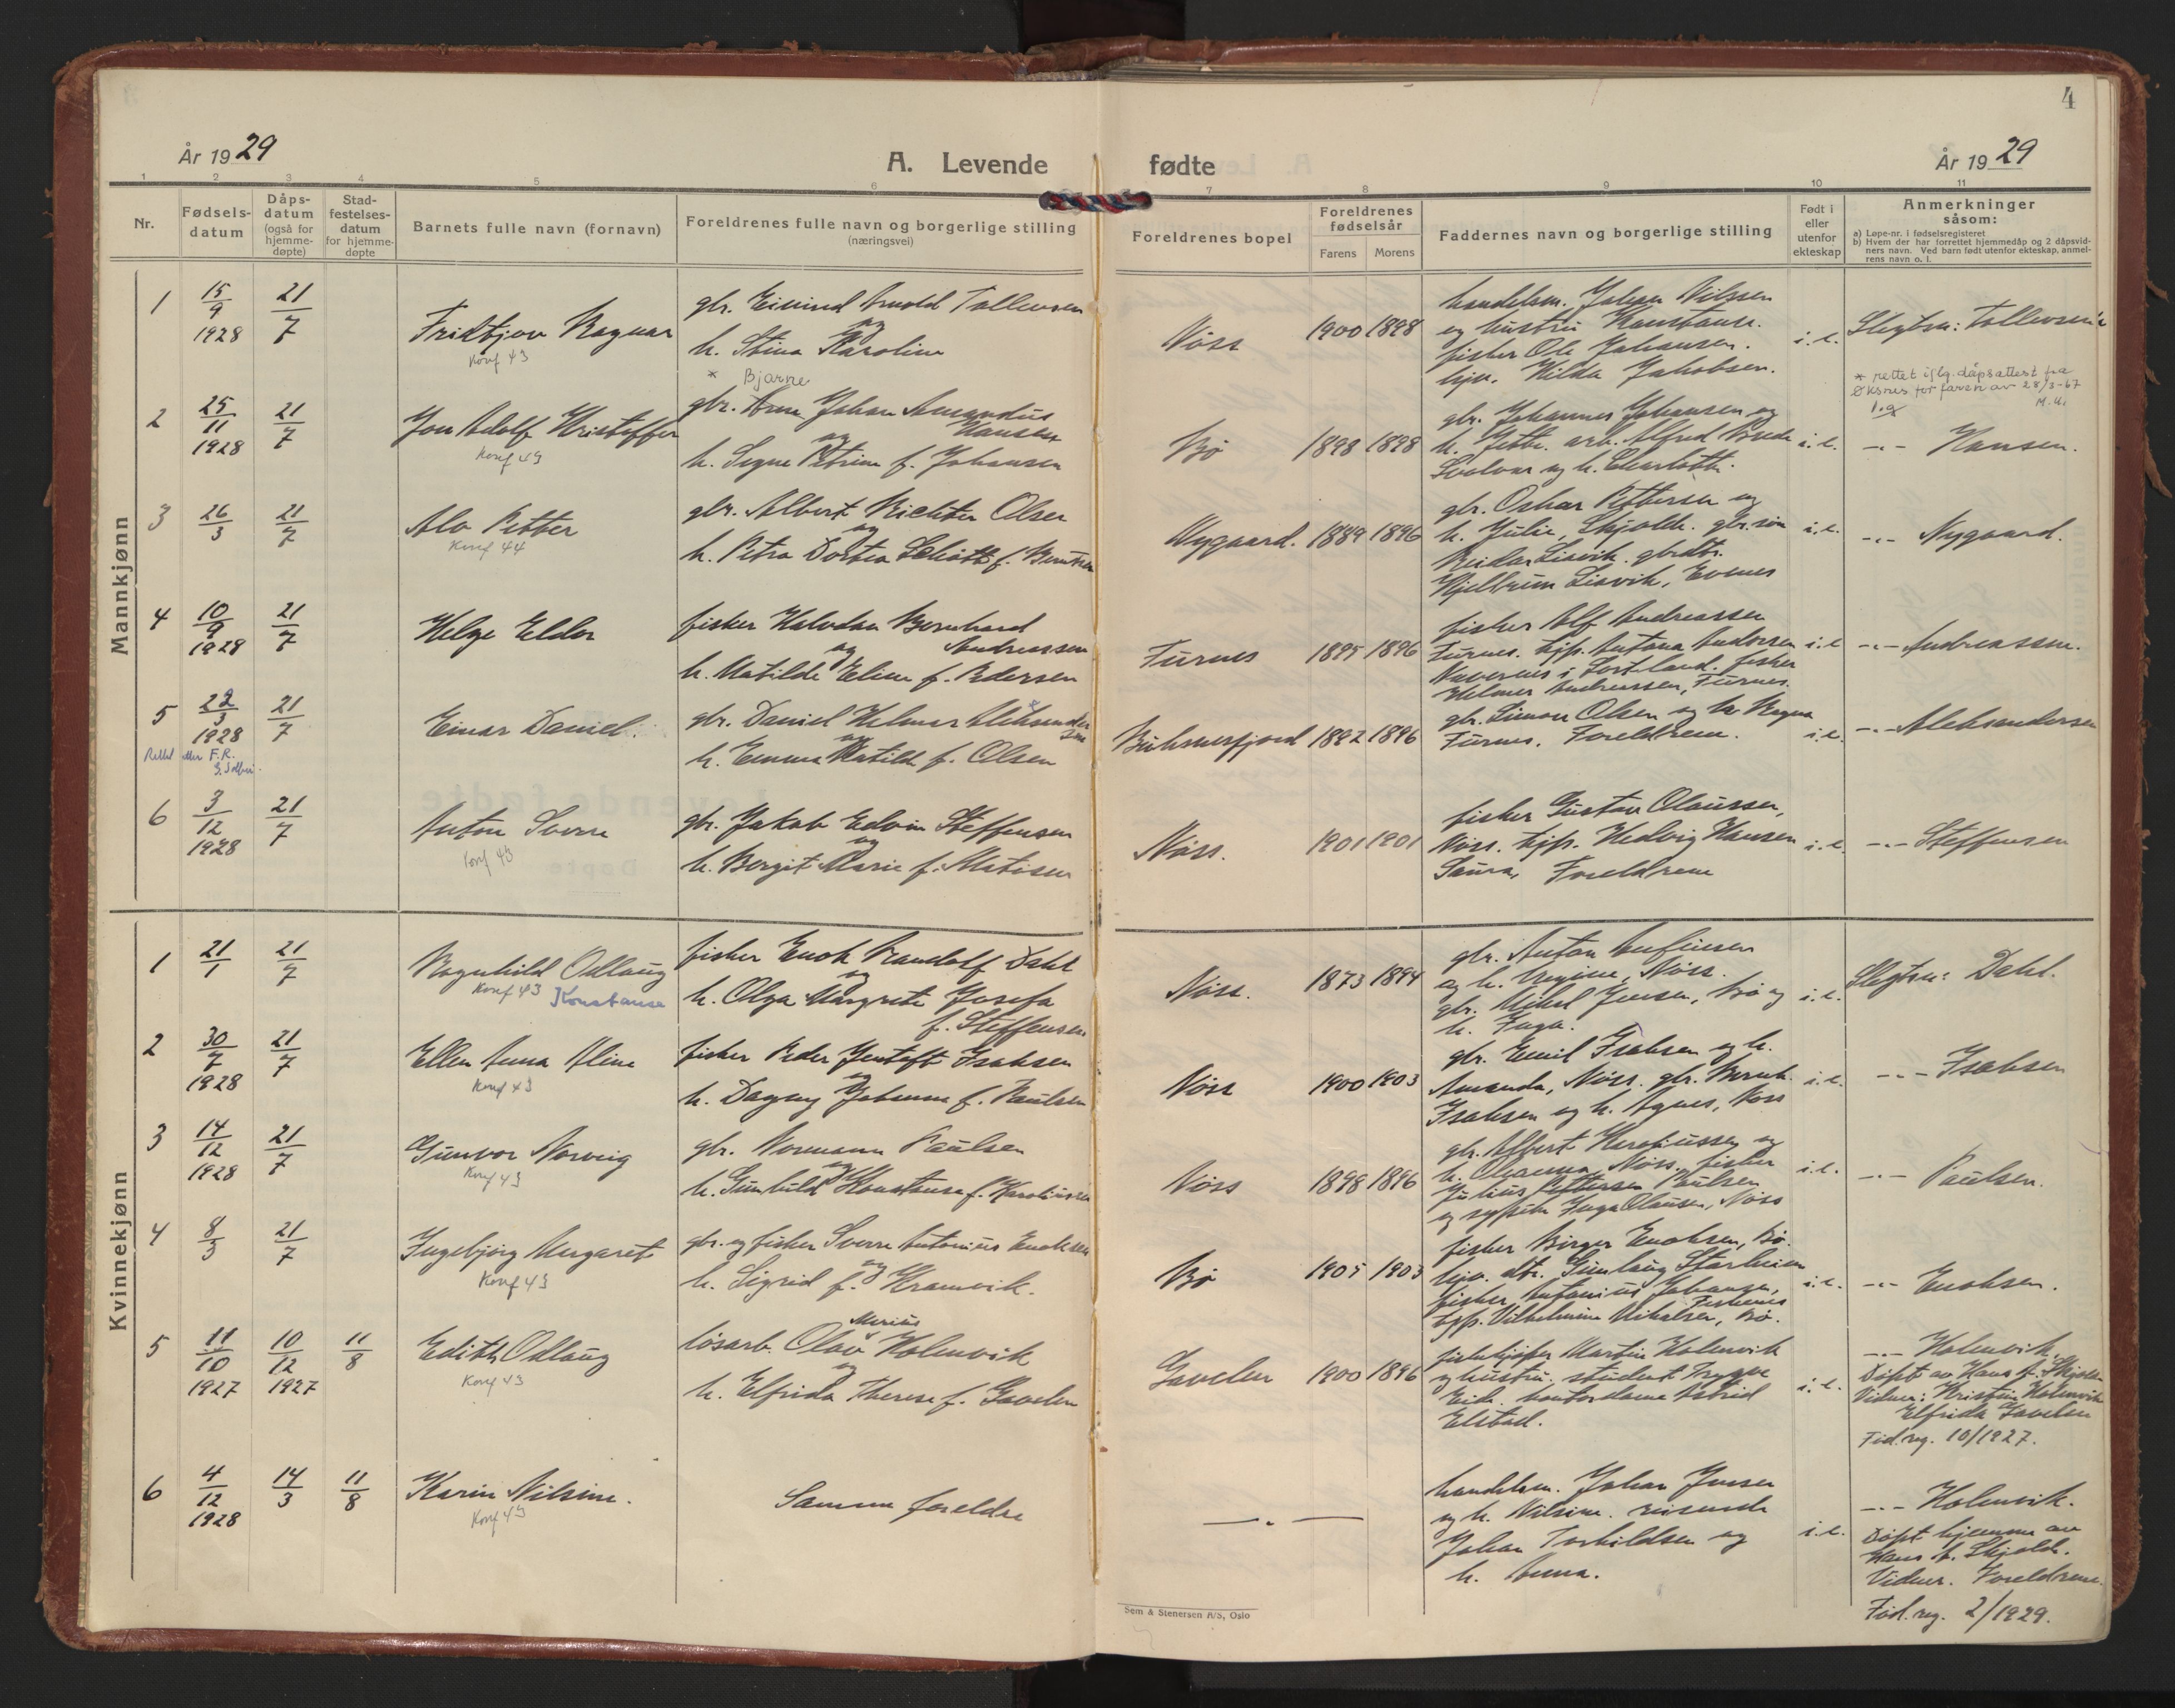 4
År 1929
A. Levende fødte
År 1929
1 2 3 4 5 6 7 8 9 10 11
Nr.
Fødsels-
datum
Dåps-
datum
(også for
hjemme-
døpte)
Stad-
festelses-
datum
for hjemme-
døpte
Barnets fulle navn (fornavn)
Foreldrenes fulle navn og borgerlige stilling
(næringsvei)
Foreldrenes bopel
Foreldrenes
fødselsår
Farens Morens
Faddernes navn og borgerlige stilling
Født i
eller
utenfor
ekteskap
Anmerkninger
såsom:
a) Løpe-nr. i fødselsregisteret
b) Hvem der har forrettet hjemmedåp og 2 dåpsvid-
ners navn. Ved barn født utenfor ekteskap, anmel-
rens navn o. l.
Mannkjønn
1
15/9
1928
21/7
Fridtjov Ragnar
Konf 43
gbr. Eivind Arnold Tollevsen
og
h. Stina Karoline
Nöss
1900 1898
handelsm. Johan Nilssen
og hustru Konstanse.
fisker Ole Johansen.
Hilda Jakobsen.
i.e.
Slegtsn: Tollevsen
2
25/11
1928
21/7
Jon Adolf Kristoffer
Konf 43
* Bjarne
gbr. Arne Johan Amandus
og Hansen
h. Signe Petrine f. Johansen
Bö
1898 1898
gbr. Johannes Johansen og
h. Jette. arb. Alfred Brede
Svolvær og h. Charlotte.
i.e.
* rettet iflg. dåpsattest fra
Øksnes for faren av 28/3-67
M.U.
-"- Hansen.
3
26/3
21/7
Alv Petter
Konf 44
gbr. Albert Richter Olsen
og
h. Petra Dortea Schött f. Berntsen
Nygaard.
1889 1896
gbr. Oskar Pettersen og
h. Julie, gbr. søn
Reidar Liavik. gbrdtr.
Kjellrun Liavik, Evenes
i.e.
-"- Nygaard.
4
10/9
1928
21/7
Helge Eldor
fisker Halvdan Bernhard
og Andreassen
h. Matilde Eline f. Pedersen
Turnes
1895 1896
fisker Alf Andreassen
Turnes. tjp. Antona Andersen
i Sortland. fisker
Helmer Andreassen, Turnes.
i.e.
-"- Andreassen.
5
22/3
1928
21/7
Rettet etter F.R.
Einar Daniel.
gbr. Daniel Helmer Aleksandersen
og
h. Emma Matilde f. Olsen
Buksnesfjord
1892 1896
gbr. Simon Olsen og h. Ragna
Turnes. Foreldrene.
i.e.
-"- Aleksandersen
6
3/12
1928
21/7
Anton Sverre
Konf 43
gbr. Jakob Edvin Steffensen
og
h. Borgit Marie f. Matisen
Nöss.
1901 1901
fisker Gustav Olaussen,
Nöss. tjp. Hedvig Hansen
Foreldrene
i.e.
-"- Steffensen
Kvinnekjønn
1
21/1
21/7
Ragnhild Odlaug
Konf 43 Konstanse
fisker Enok Randolf Dahl
og
h. Olga Margrete Josefa
f. Steffensen
Nöss.
1873 1894
gbr. Anton Anfinsen
og h. Nöss.
gbr. Mikal Jensen, Bö og
h. Inga.
i.e.
Slegtsn: Dahl.
2
30/7
1928
21/7
Ellen Anna Aline
Konf 43
fisker Peder Jentoft Isaksen
og
h. Dagny Johanna f. Paulsen
Nöss
1900 1903
gbr. Emil Isaksen og h.
Amanda, Nöss. gbr. Bernh.
Isaksen og h. Agnes, Nöss
i.e.
-"- Isaksen
3
14/12
1928
21/7
Gunvor Norveig
Konf 43
gbr. Normann Paulsen
og
h. Gunhild Konstanse f. Karoliussen
Nöss
1898 1896
gbr. Albert Karoliussen og
h. Nöss. fisker
Julius Pettersen Paulsen
og Inga Olausen, Nöss
i.e.
-"- Paulsen.
4
8/3
21/7
Ingebjörg Margaret
Konf 43
gbr. og fisker Sverre Antonius Enoksen
og
h. Sigrid f. Kramvik.
Bö
1905 1903
fisker Birger Enoksen, Bö.
dtr. Gunlaug Starheim
fisker Antonius Johansen,
Vilhelmine Mikalsen, Bö.
i.e.
-"- Enoksen.
5
11/10
1927
10/12
1927
11/8
Edith Odlaug
Konf 43
Merius
lösarb. Olav Holmvik
og
h. Elfrida Therese f. Gavelen
Gavelen
1900 1896
Martin Holmvik
og hustru. student Trygve
Eide. kontordame Astrid
Elstad.
i.e.
-"- Holmvik.
Döpt av Hans A. Skjolde
Vidner: Kristine Holmvik
Elfrida Gavelen
Föd.reg. 10/1927.
6
4/12
1928
14/3
11/8
Karin Nilsine.
Konf 43
Samme foreldre
— " —
handelsm. Johan Jensen
og h. Nilsine. reisende
Johan Torkildsen og
h. Anna.
i.e.
-"- Holmvik.
Döpt hjemme av
Hans A. Skjolde.
Vidner. Foreldrene.
Föd.reg. 2/1929.
Sem & Stenersen A/S, Oslo